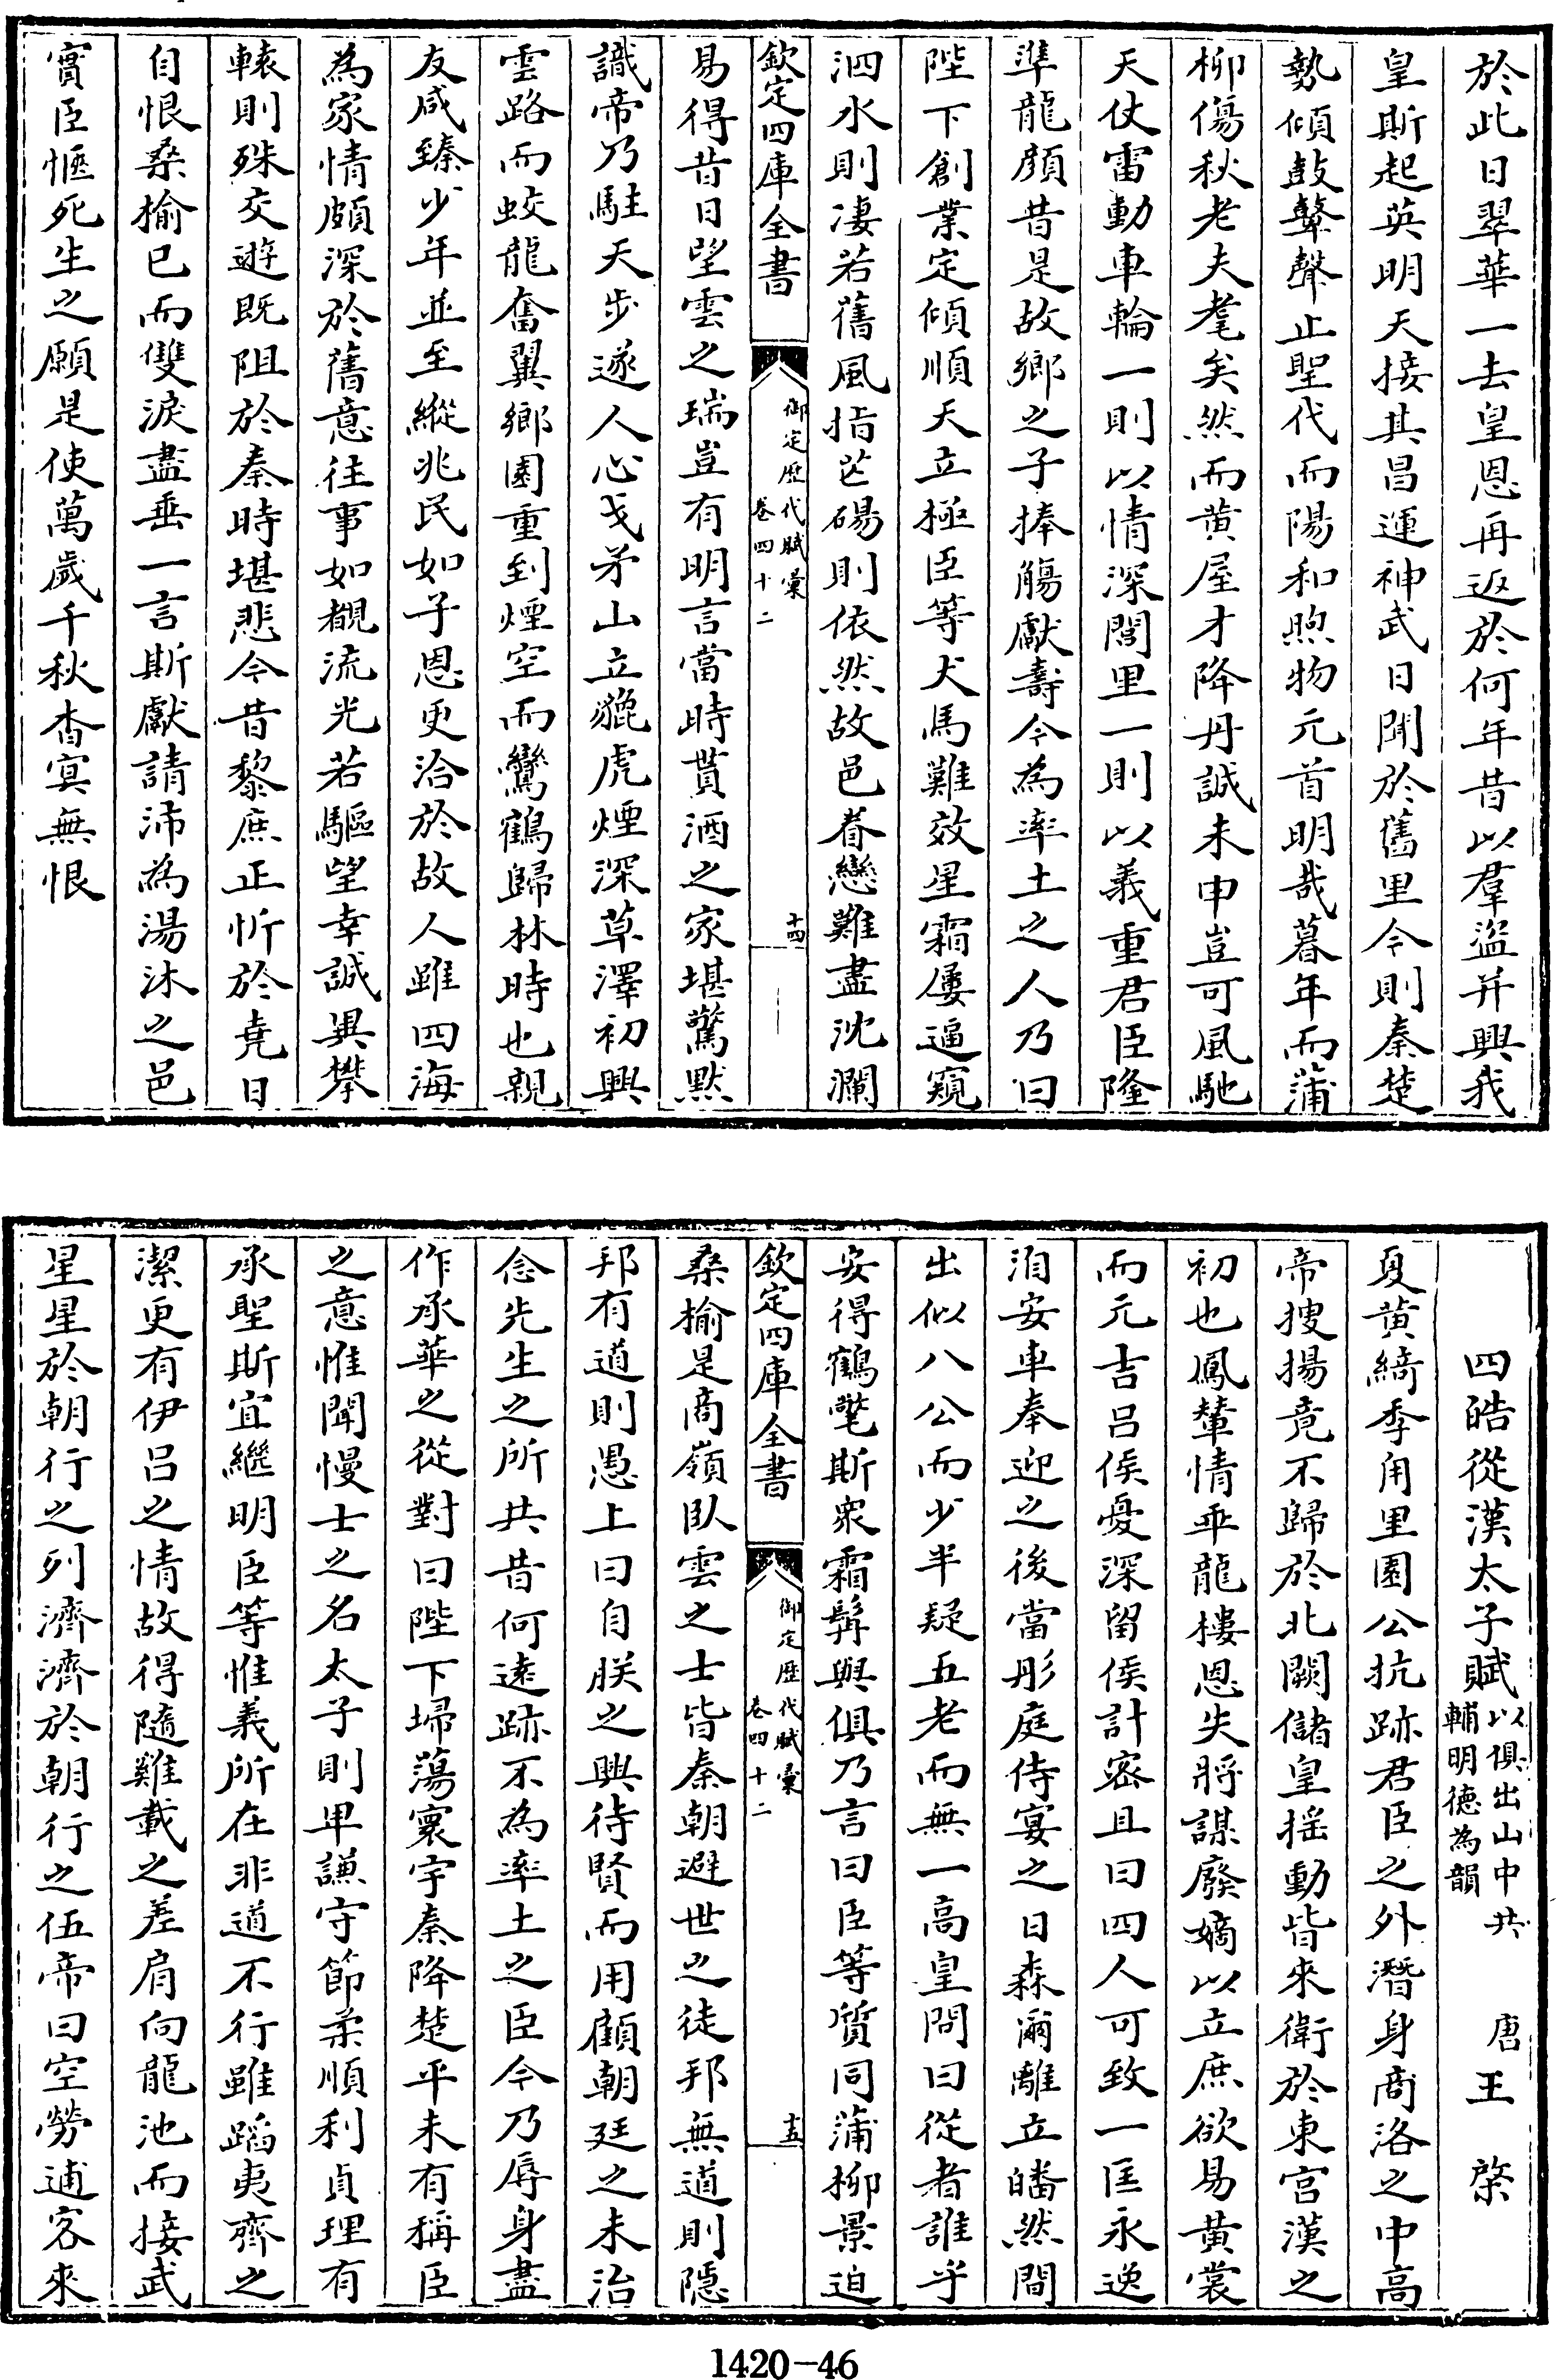 於此日翠華一去皇恩再返於何年昔以羣盗并興我
皇斯起英明天接其昌運神武日聞於舊里今則秦楚
勢傾鼓鼙聲止聖代而陽和煦物元首明哉暮年而蒲
柳傷秋老夫耄矣然而黄屋才降丹誠未申豈可風馳
天仗雷動車輪一則以情深閭里一則以義重君臣隆
準龍顔昔是故鄉之子捧觴獻壽今為率土之人乃曰
陛下創業定傾順天立極臣等犬馬難效星霜屢逼窺
泗水則凄若舊風指芒碭則依然故邑眷戀難盡沈瀾
欽定四庫全書
御定歷代賦彙
卷四十二
十四
易得昔日望雲之瑞豈有明言當時貰酒之家堪驚默
識帝乃駐天步遂人心戈矛山立貔虎煙深草澤初興
雲路而蛟龍奮翼鄉園重到煙空而鸞鶴歸林時也親
友咸臻少年並至縱兆民如子恩更洽於故人雖四海
為家情頗深於舊意往事如覩流光若驅望幸誠異攀
轅則殊交遊既阻於秦時堪悲今昔黎庶正忻於堯日
自恨桑榆已而雙淚盡垂一言斯獻請沛為湯沐之邑
實臣愜死生之願是使萬歲千秋杳冥無恨
四皓從漢太子賦
以俱出山中共
輔明德為韻
唐王棨
夏黄綺季甪里園公抗跡君臣之外潛身商洛之中高
帝搜揚竟不歸於北闕儲皇揺動皆來衛於東宫漢之
初也鳳輦情乖龍樓恩失將謀廢嫡以立庶欲易黄裳
而元吉吕侯憂深留侯計密且曰四人可致一匡永逸
洎安車奉迎之後當彤庭侍宴之日森爾離立皤然間
出似八公而少半疑五老而無一高皇問曰從者誰乎
安得鶴氅斯衆霜髯與俱乃言曰臣等質同蒲柳景迫
欽定四庫全書
御定歷代賦彙
卷四十二
十五
桑榆是商嶺臥雲之士皆秦朝避世之徒邦無道則隠
邦有道則愚上曰自朕之興待賢而用顧朝廷之未治
念先生之所共昔何逺跡不為率土之臣今乃辱身盡
作承華之從對曰陛下埽蕩寰宇秦降楚平未有稱臣
之意惟聞慢士之名太子則卑謙守節柔順利貞理有
承聖斯宜繼明臣等惟義所在非道不行雖蹈夷齊之
潔更有伊吕之情故得隨難載之差肩向龍池而接武
星星於朝行之列濟濟於朝行之伍帝曰空勞逋客來
1420-46